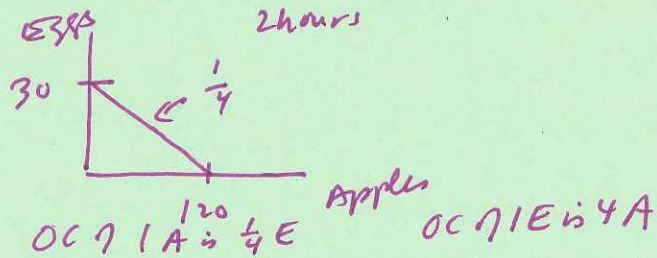 Eggs 2 hours
30 1/4
120 Apples
OC of 1 A is 1/4 E OC of 1 E is 4 A